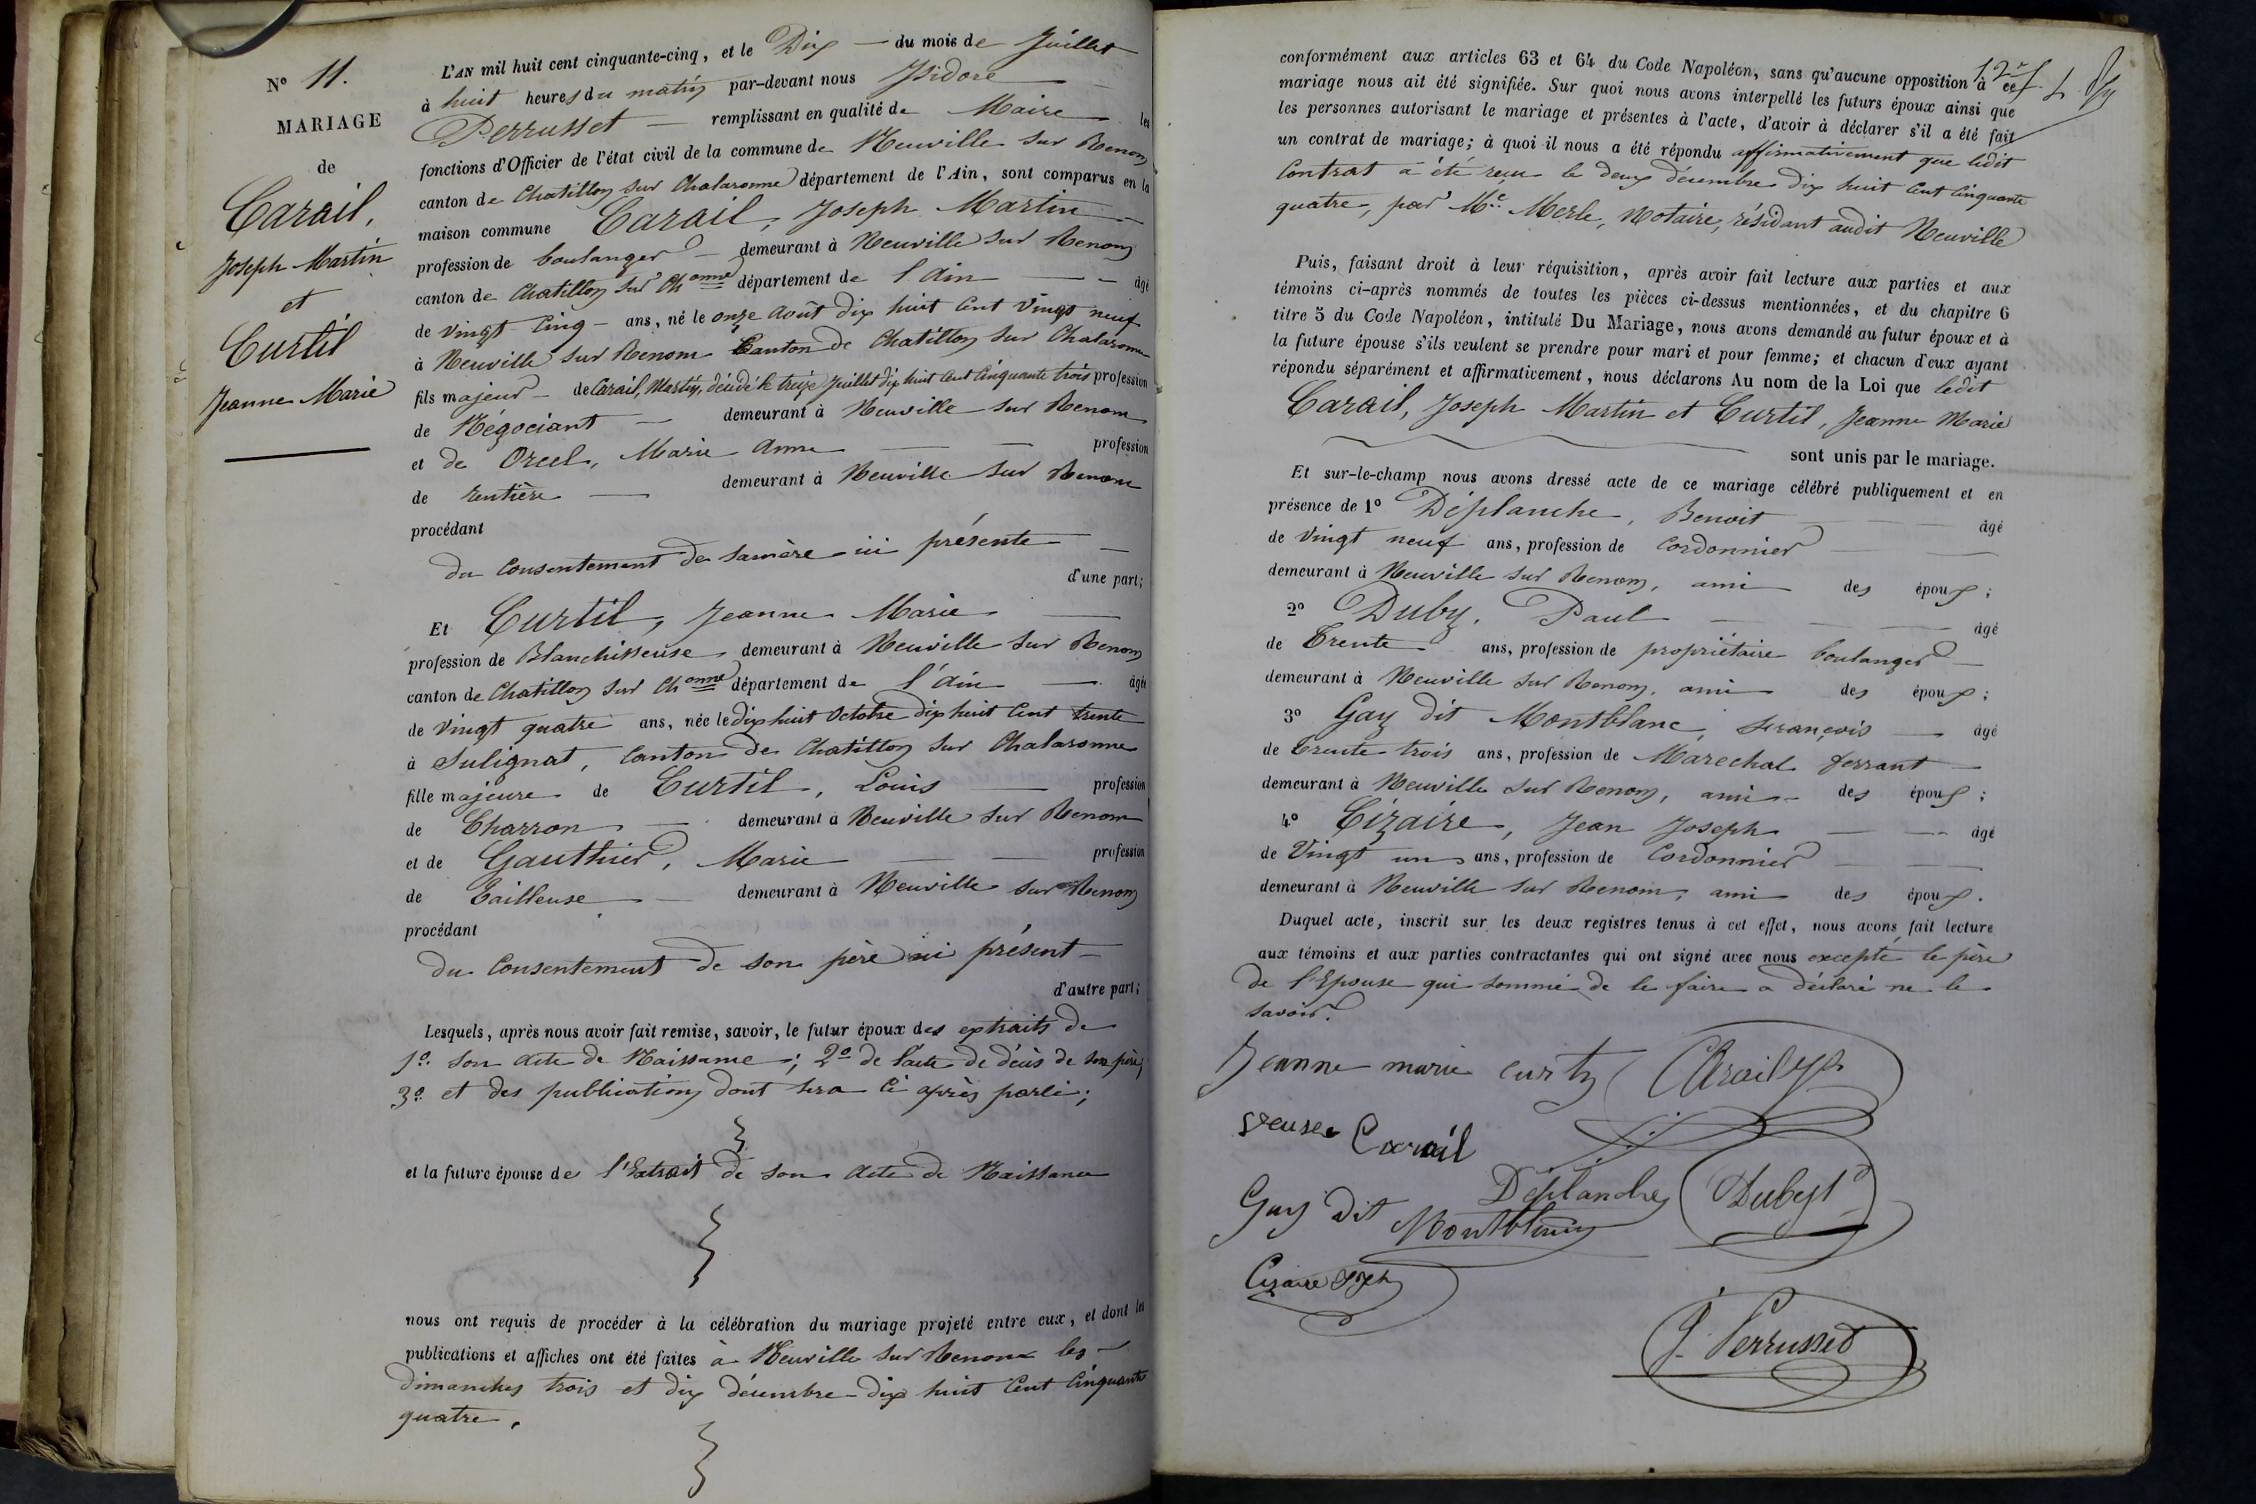 N° 11.
MARIAGE
de
Carail,
Joseph Martin
et
Curtil
Jeanne Marie
L'AN mil huit cent cinquante-cinq, et le Dix — du mois de Juillet
à huit heures du matin par-devant nous Isidore
Perrusset — remplissant en qualité de Maire les
fonctions d'Officier de l'état civil de la commune de Neuville sur Renon
canton de Chatillon sur Chalaronne département de l'Ain, sont comparus en la
maison commune Carail, Joseph Martin
profession de boulanger — demeurant à Neuville sur Renon
canton de Chatillon sur Chonne département de l'Ain — âgé
de vingt cinq — ans, né le onze Août dix huit cent vingt neuf
à Neuville sur Renom Canton de Chatillon sur Chalaronne
fils majeur — de Carail, Martin, décédé le treize Juillet dix huit cent cinquante trois profession
de Négociant — demeurant à Neuville sur Renom
et de Orcel, Marie Anne — profession
de rentière — demeurant à Neuville sur Renom
procédant
du consentement de sa mère ici présente —
d'une part;
Et Curtil, Jeanne Marie
profession de Blanchisseuse demeurant à Neuville sur Renon
canton de Chatillon sur Chonne département de l'Ain — âgée
de vingt quatre ans, née le dix huit Octobre dix huit cent trente
à Sulignat, canton de Chatillon sur Chalaronne
fille majeure de Curtil, Louis — profession
de Charron — demeurant à Neuville sur Renom
et de Gauthier, Marie — profession
de Tailleuse — demeurant à Neuville sur Renon
procédant
du Consentement de son père ici présent —
d'autre part;
Lesquels, après nous avoir fait remise, savoir, le futur époux des extraits de
1° son acte de Naissance; 2° de l'acte de décès de son père;
3° et des publications dont sera ci après parlé;
et la future épouse de l'Extrait de son acte de Naissance
nous ont requis de procéder à la célébration du mariage projeté entre eux, et dont les
publications et affiches ont été faites à Neuville sur Renom les —
dimanches trois et dix décembre dix huit cent cinquante
quatre.
conformément aux articles 63 et 64 du Code Napoléon, sans qu'aucune opposition à ce
mariage nous ait été signifiée. Sur quoi nous avons interpellé les futurs époux ainsi que
les personnes autorisant le mariage et présentes à l'acte, d'avoir à déclarer s'il a été fait
un contrat de mariage; à quoi il nous a été répondu affirmativement que ledit
Contrat a été reçu le deux décembre dix huit cent cinquante
quatre, par Me Merle, Notaire, résidant audit Neuville
Puis, faisant droit à leur réquisition, après avoir fait lecture aux parties et aux
témoins ci-après nommés de toutes les pièces ci-dessus mentionnées, et du chapitre 6
titre 5 du Code Napoléon, intitulé Du Mariage, nous avons demandé au futur époux et à
la future épouse s'ils veulent se prendre pour mari et pour femme; et chacun d'eux ayant
répondu séparément et affirmativement, nous déclarons Au nom de la Loi que ledit
Carail, Joseph Martin et Curtil, Jeanne Marie
sont unis par le mariage.
Et sur-le-champ nous avons dressé acte de ce mariage célébré publiquement et en
présence de 1° Déplanche, Benoit — âgé
de vingt neuf ans, profession de Cordonnier
demeurant à Neuville sur Renon, ami des époux;
2° Duby, Paul — âgé
de Trente ans, profession de propriétaire boulanger
demeurant à Neuville sur Renon, ami des époux;
3° Gay dit Montblanc, François — âgé
de trente trois ans, profession de Marechal ferrant —
demeurant à Neuville sur Renon, ami — des époux;
4° Cizaire, Jean Joseph — âgé
de Vingt un ans, profession de Cordonnier
demeurant à Neuville sur Renom, ami des époux.
Duquel acte, inscrit sur les deux registres tenus à cet effet, nous avons fait lecture
aux témoins et aux parties contractantes qui ont signé avec nous excepté le père
de l'Epouse qui sommé de le faire a déclaré ne le
savoir.
Jeanne marie curty
veuse Carail
Déplanche
Gay dit Montblanc
Cizaire
J. Perrusset